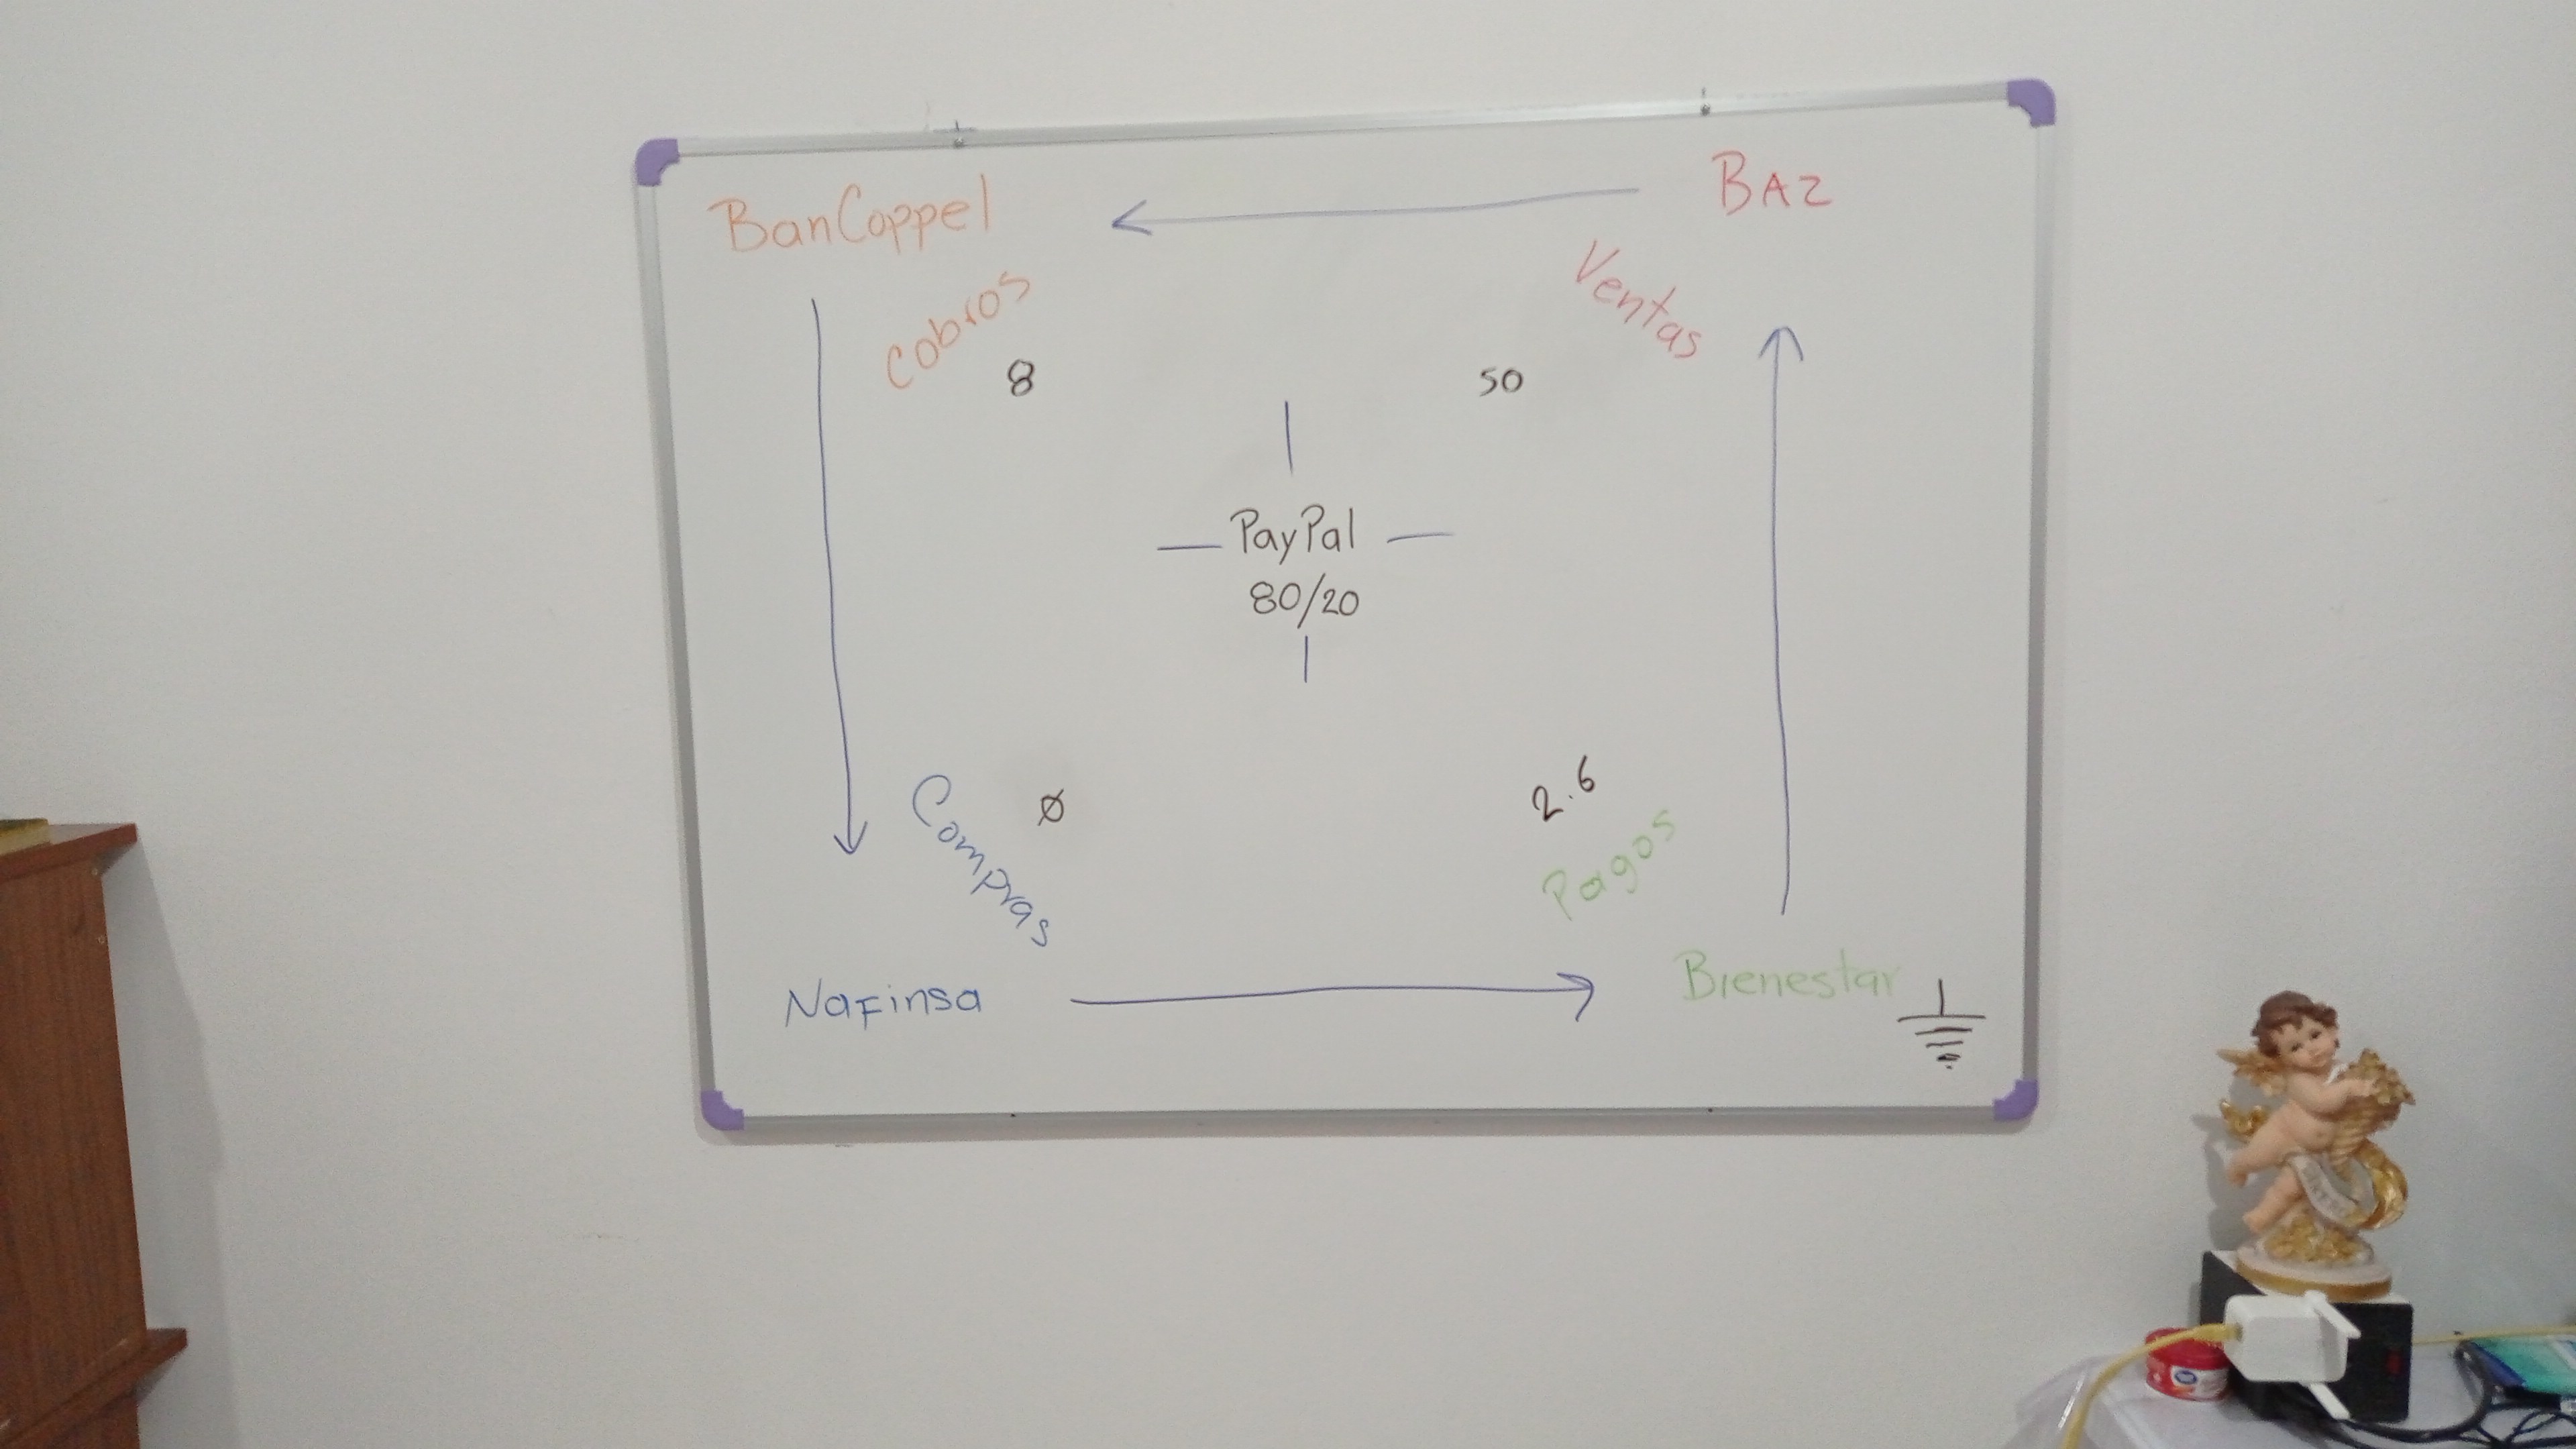 BanCoppel
BAZ
Cobros
Ventas
8
50
PayPal
80/20
Compras
Ø
2.6
Pagos
NaFinsa
Bienestar